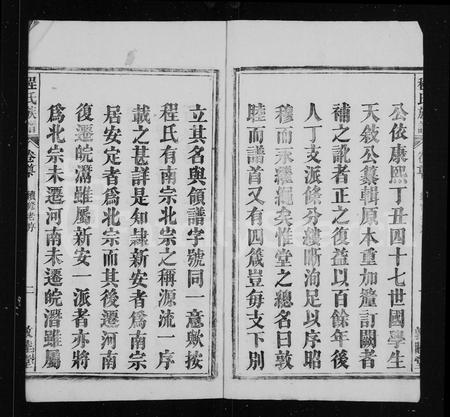 公依康熙丁丑四十七世國學生
天敘公纂輯原本重加釐訂闕者
補之訛者正之復益以百餘年後
人丁支派條分縷晰洵足以序昭
穆而永繩繩矣惟堂之總名曰敦
睦而譜首又有四箴豈每支下別
立其名與領譜字號同一意歟按
程氏有南宗北宗之稱源流一序
載之甚詳是知隸新安者爲南宗
居安定者爲北宗而其後遷河南
復遷皖潛雖屬新安一派者亦將
爲北宗未遷河南未遷皖潛雖屬
程氏族譜
卷等
續修老序
二
敦睦堂